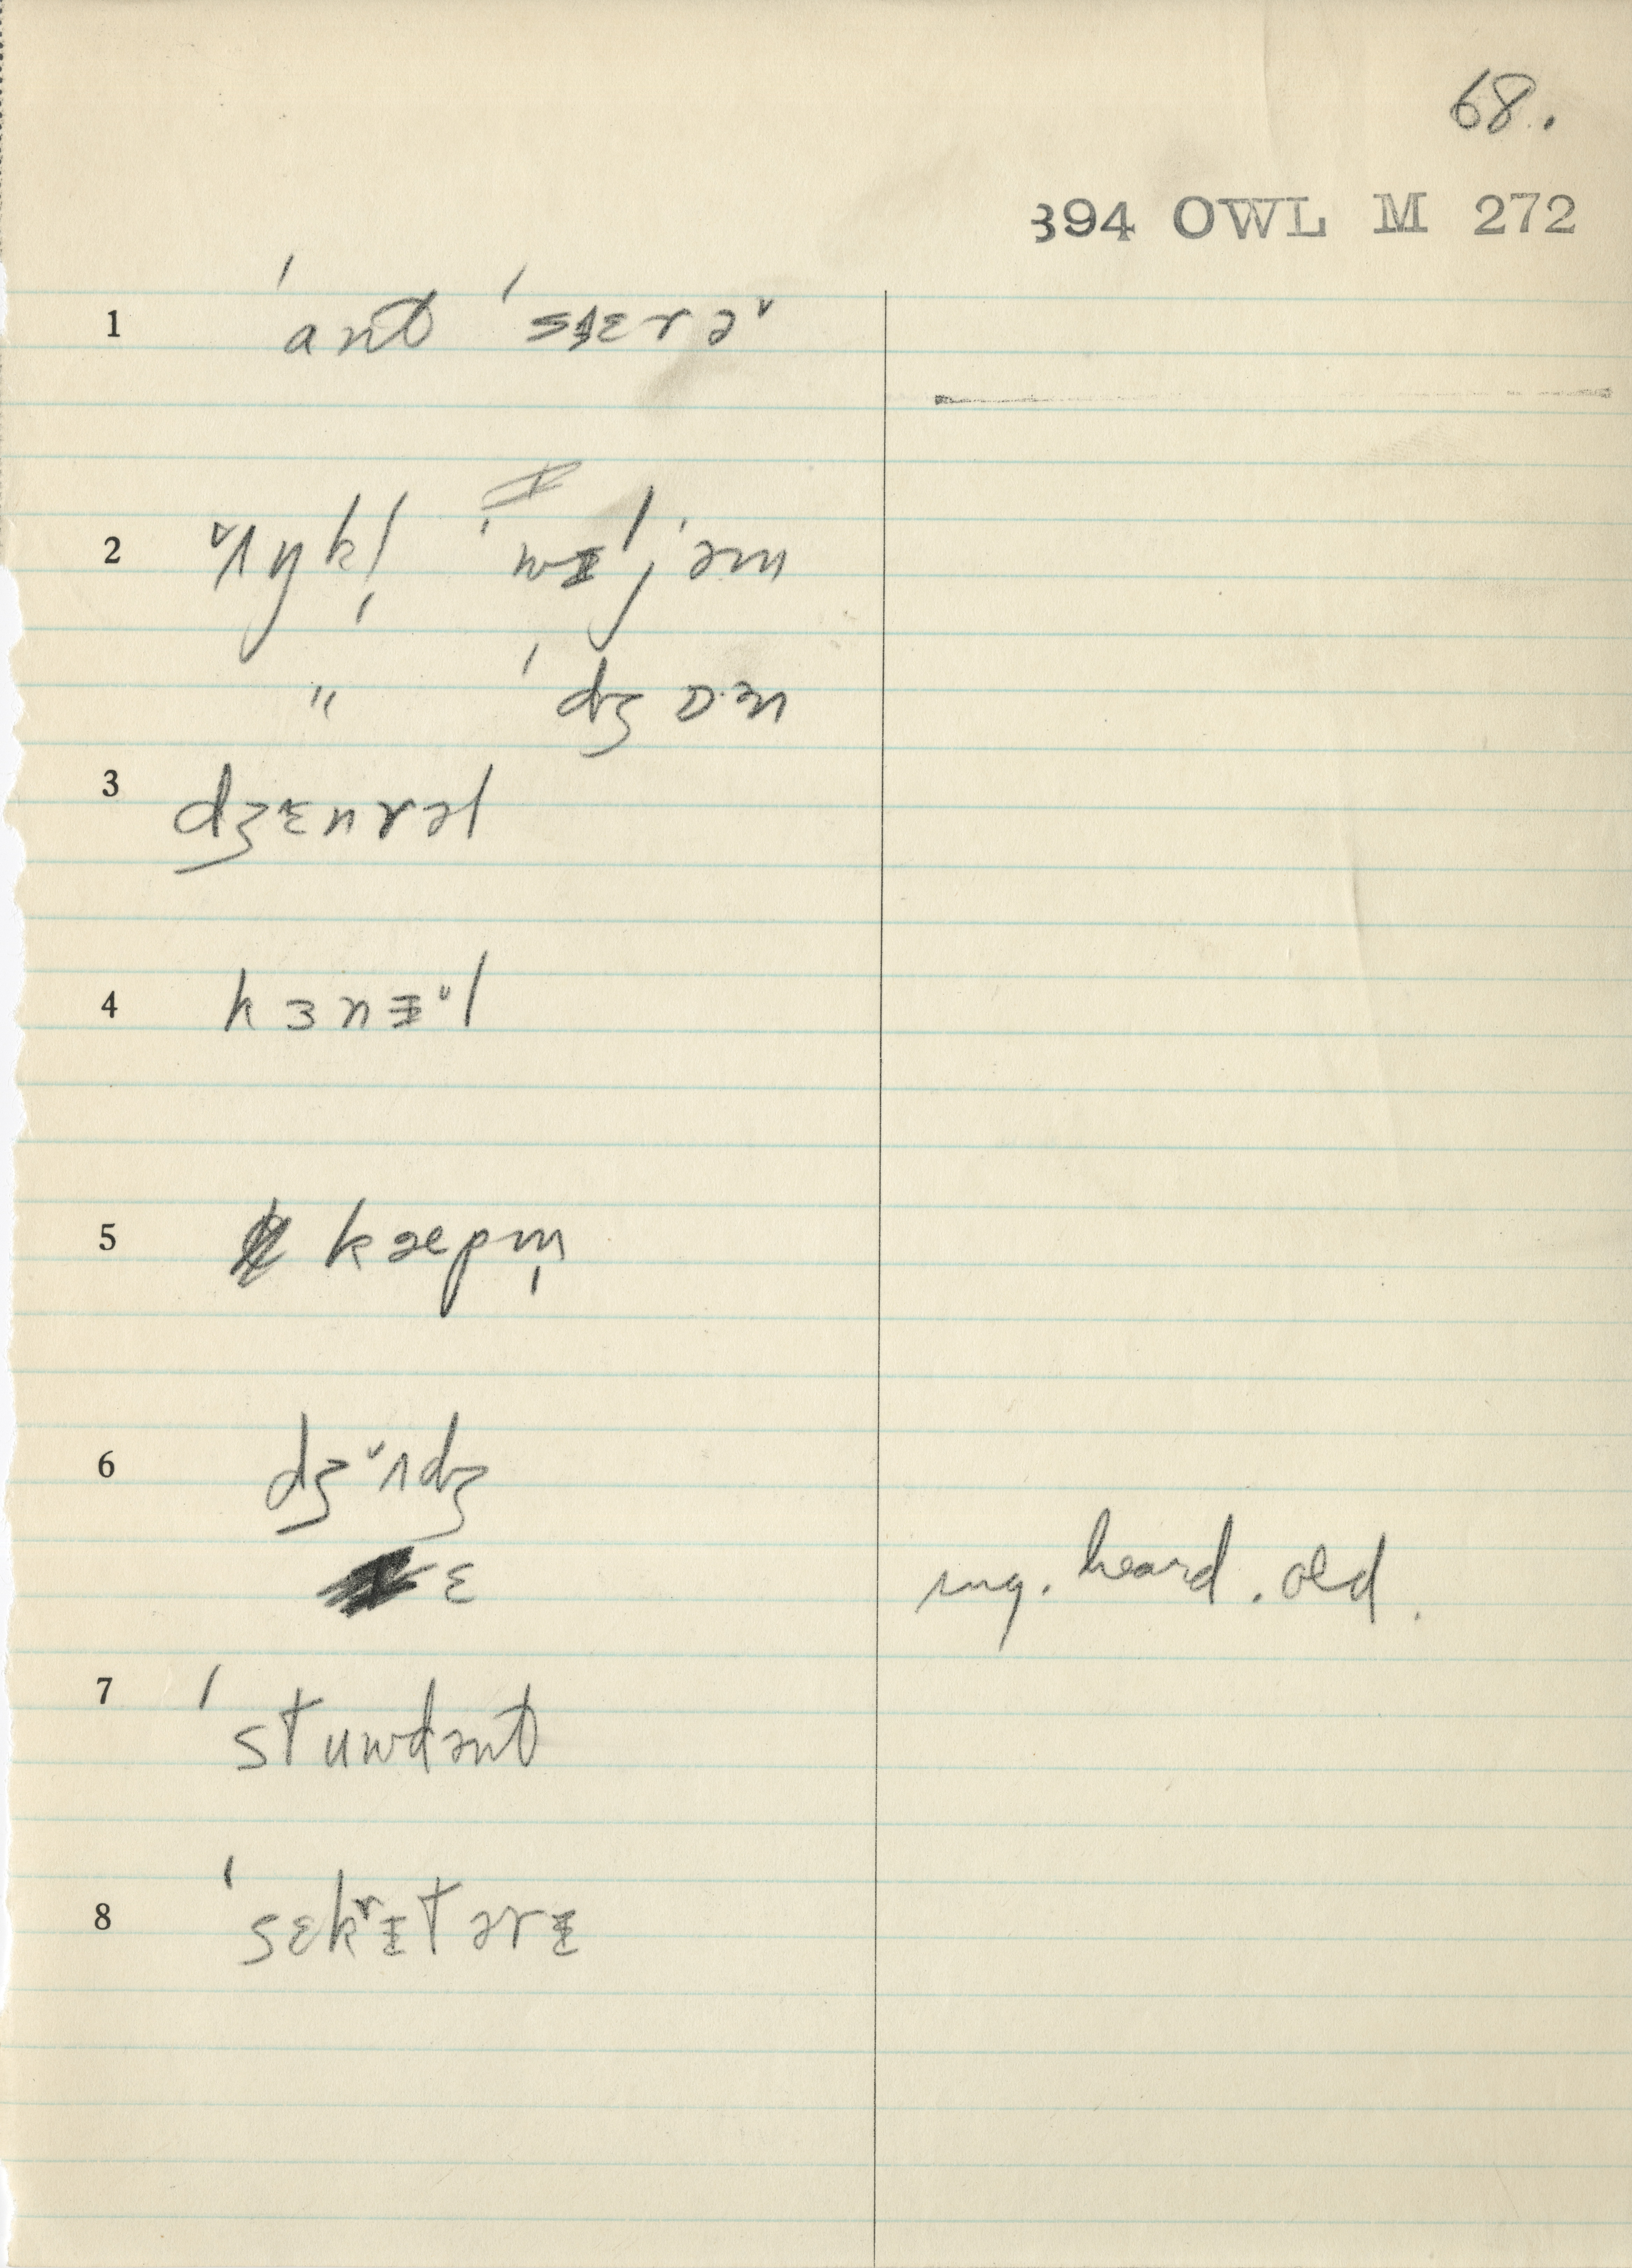 68.
394 OWL M 272
1 ˈant ˈsɛrə˅
2 ˅ʌŋkl̩ ˈwɪljəm
" ˈdʒɒ·ɜn
3 dʒɛnrəl
4 kɜnɪ˅l
5 kæpm̩
6 dʒ˅ʌdʒ
ɛ sug. heard. old.
7 ˈstuwdənt
8 ˈsɛkrɪtərɪ